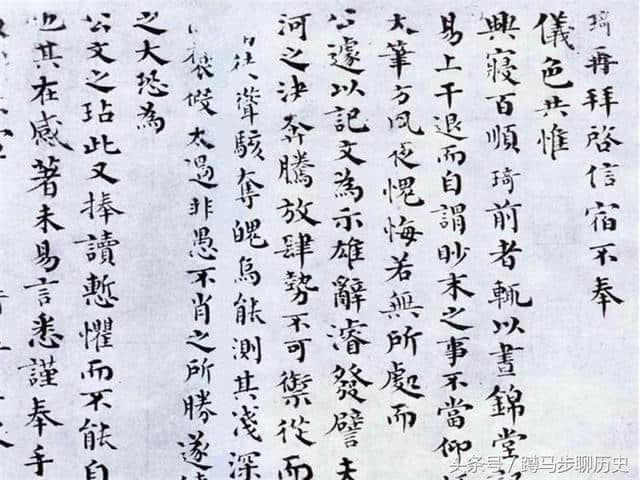 琦再拜啓信宿不奉
儀色共惟
興寢百順琦前者輒以晝錦堂記
易上干退而自謂眇末之事不當仰
大筆方夙夜愧悔若無所處而
公遽以記文為示雄辭濬發譬夫
河之決奔騰放肆勢不可禦從而
徒聳駭奪魄烏能測其淺深
褒假太過非愚不肖之所勝遂
之大恐為
公文之玷此又捧讀慙懼而不能自
也其在感著未易言悉謹奉手
头条号/蹲马步聊历史